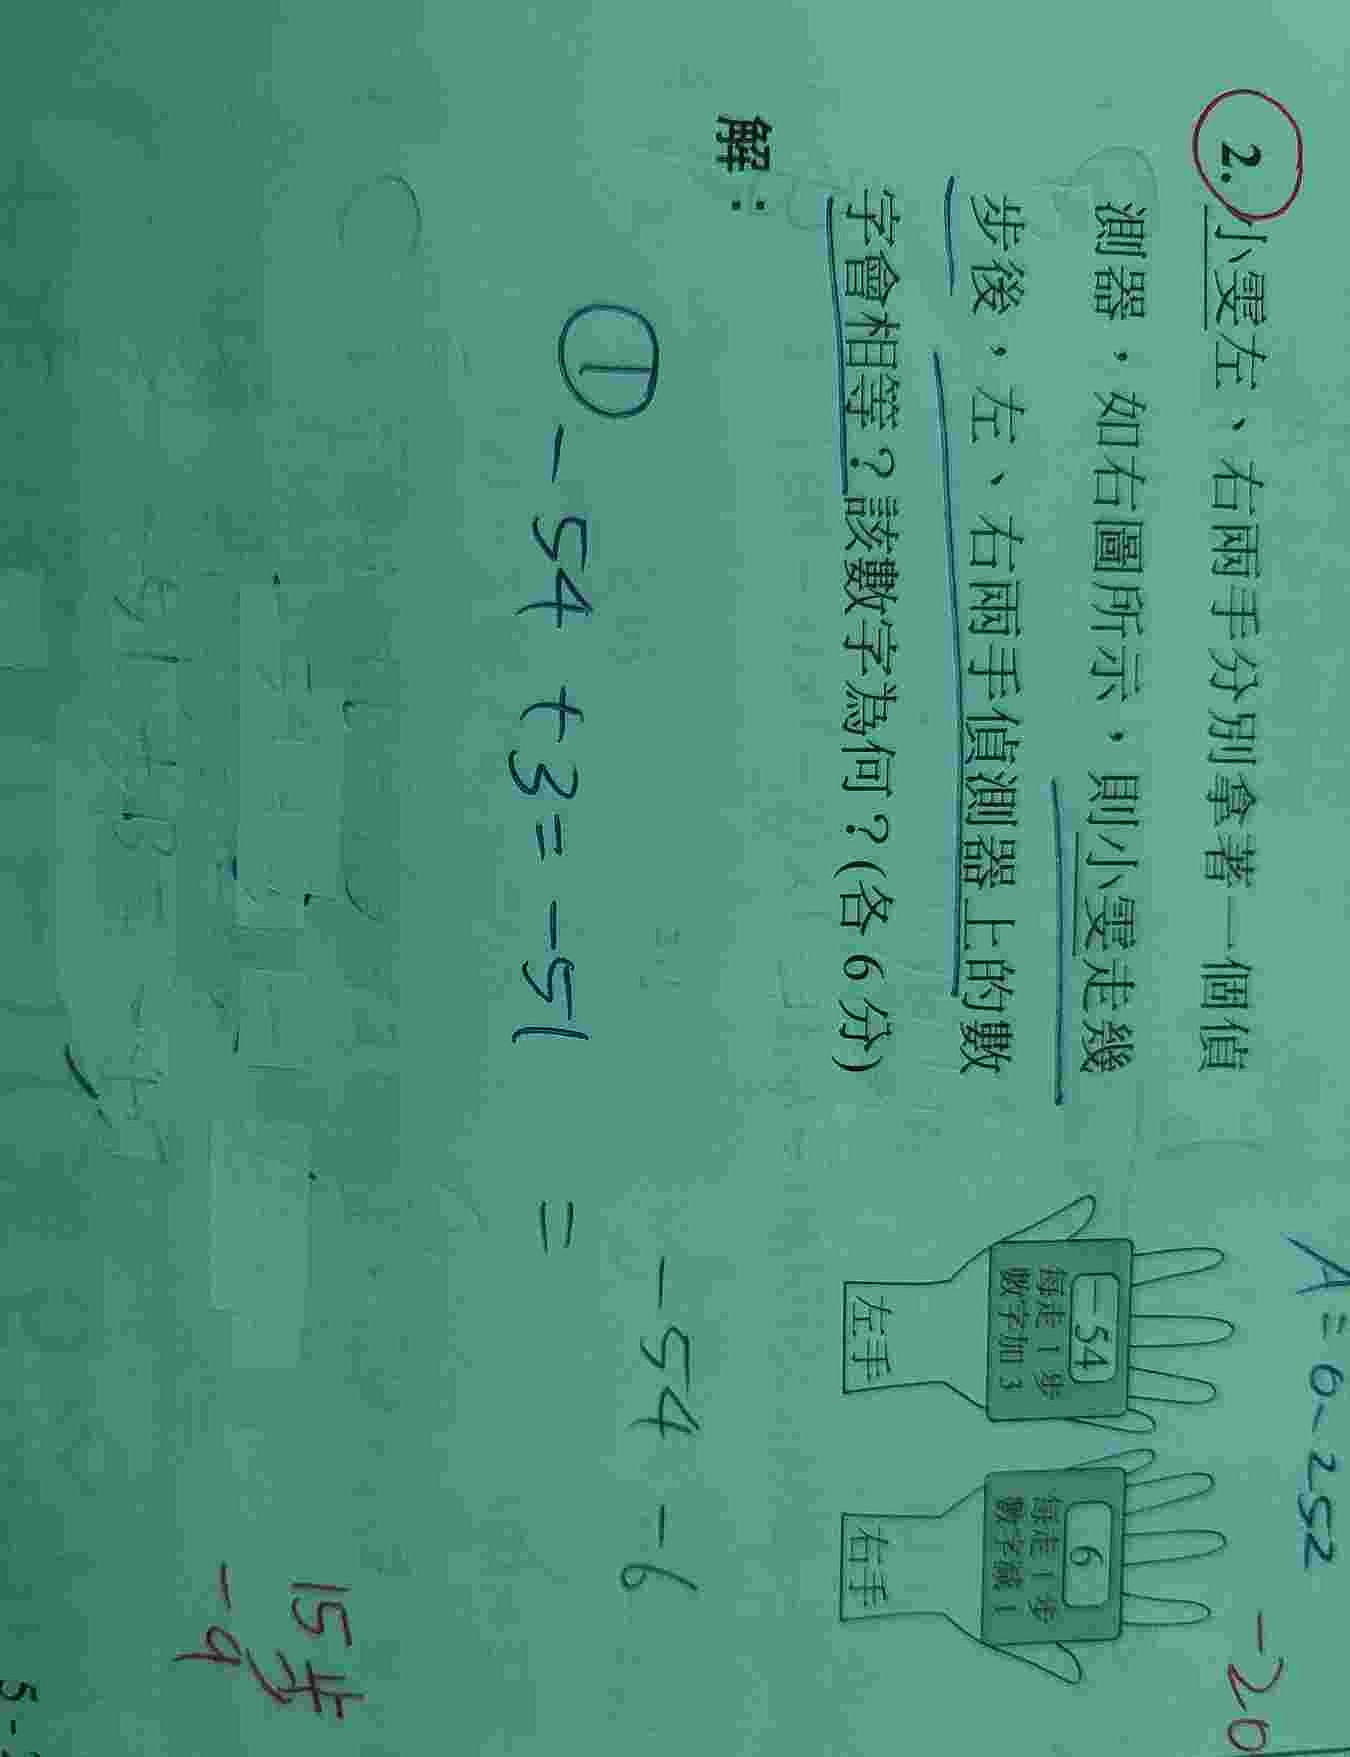 A=6-252
-20
2. 小雯左、右兩手分別拿著一個偵
測器，如右圖所示，則小雯走幾
步後，左、右兩手偵測器上的數
字會相等？該數字為何？(各 6 分)
-54
每走 1 步
數字加 3
左手
6
每走 1 步
數字減 1
右手
解：
① -54+3=-51
=
-54-6
15步
-9